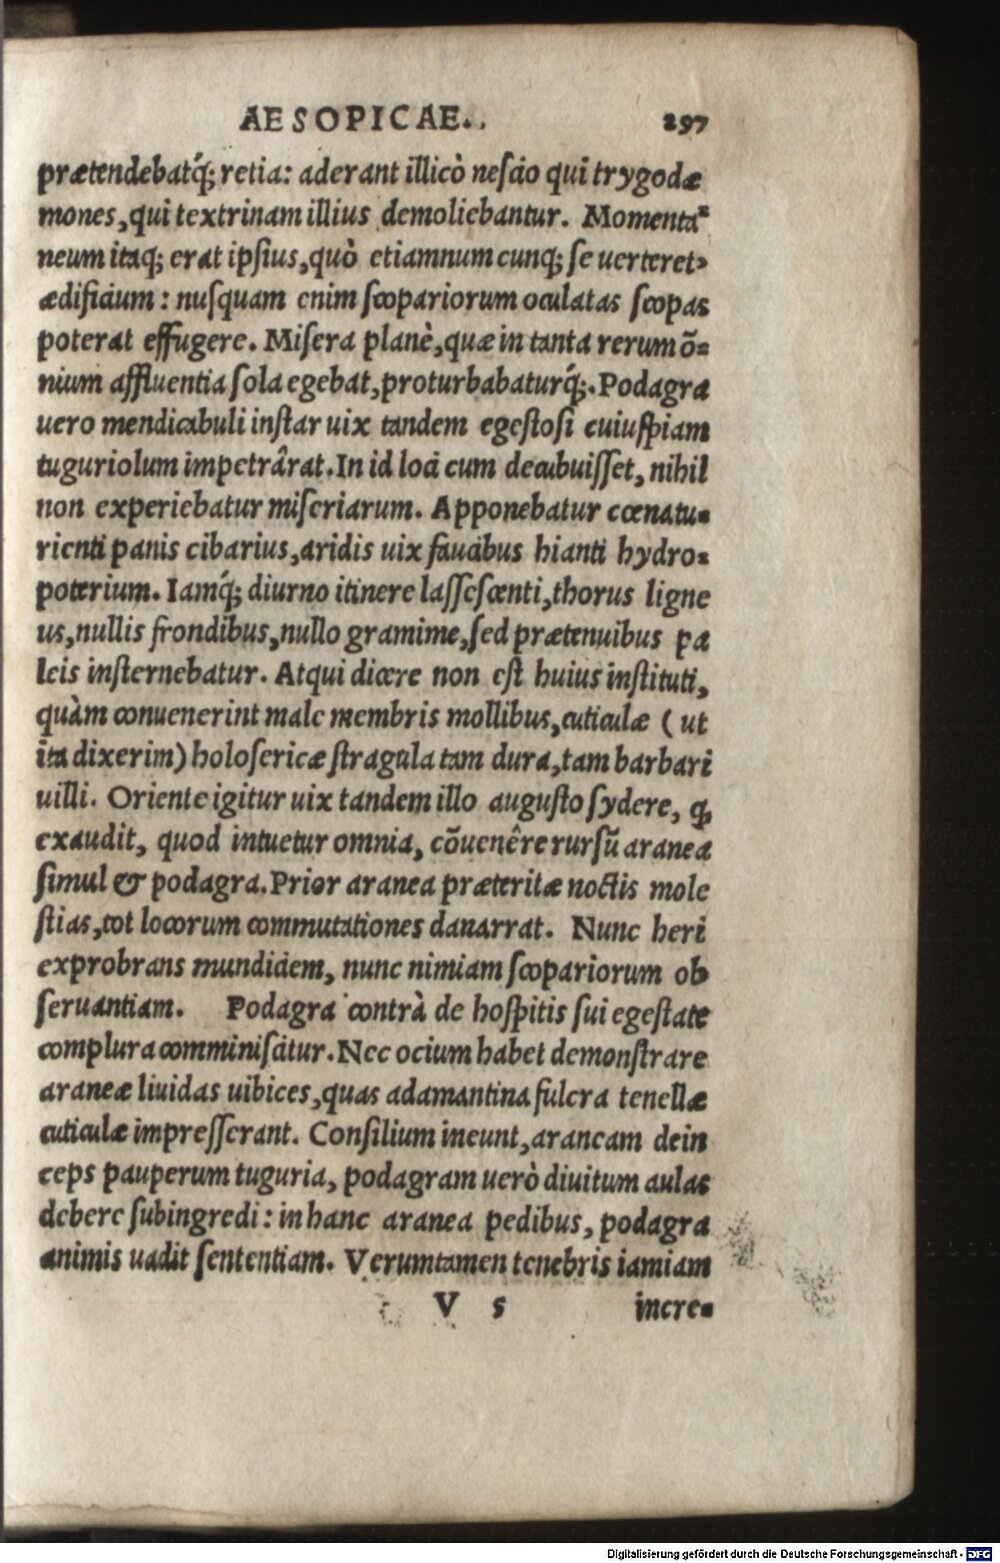 AESOPICAE. 297
prætendebatq́; retia: aderant illicò nescio qui trygodæ
mones, qui textrinam illius demoliebantur. Momenta⸗
neum itaq; erat ipsius, quò etiamnum cunq; se uerteret,
ædificium: nusquam enim scopariorum oculatas scopas
poterat effugere. Misera planè, quæ in tanta rerum õ⸗
nium affluentia sola egebat, proturbabaturq́;. Podagra
uero mendicabuli instar uix tandem egestosi cuiuspiam
tuguriolum impetrârat. In id loci cum decubuisset, nihil
non experiebatur miseriarum. Apponebatur cœnatu⸗
rienti panis cibarius, aridis uix faucibus hianti hydro⸗
poterium. Iamq́; diurno itinere lassescenti, thorus ligne
us, nullis frondibus, nullo gramime, sed prætenuibus pa
leis insternebatur. Atqui dicere non est huius instituti,
quàm conuenerint male membris mollibus, cuticulæ (ut
ita dixerim) holosericæ stragula tam dura, tam barbari
uilli. Oriente igitur uix tandem illo augusto sydere, ꝙ
exaudit, quod intuetur omnia, cõuenêre rursũ aranea
simul & podagra. Prior aranea præteritæ noctis mole
stias, tot locorum commutationes danarrat. Nunc heri
exprobrans mundiciem, nunc nimiam scopariorum ob
seruantiam. Podagra contrà de hospitis sui egestate
complura comminiscitur. Nec ocium habet demonstrare
araneæ liuidas uibices, quas adamantina fulcra tenellæ
cuticulæ impresserant. Consilium ineunt, araneam dein
ceps pauperum tuguria, podagram uerò diuitum aulas
debere subingredi: in hanc aranea pedibus, podagra
animis uadit sententiam. Veruntamen tenebris iamiam
V 5 incre⸗
Digitalisierung gefördert durch die Deutsche Forschungsgemeinschaft - DFG